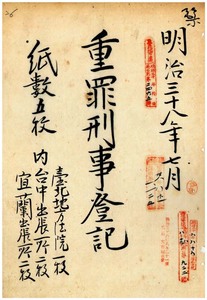 明治三十八年七月
重罪刑事登記
紙數五枚
内
臺北地方法院一枚
台中出張所二枚
宜蘭出張所二枚